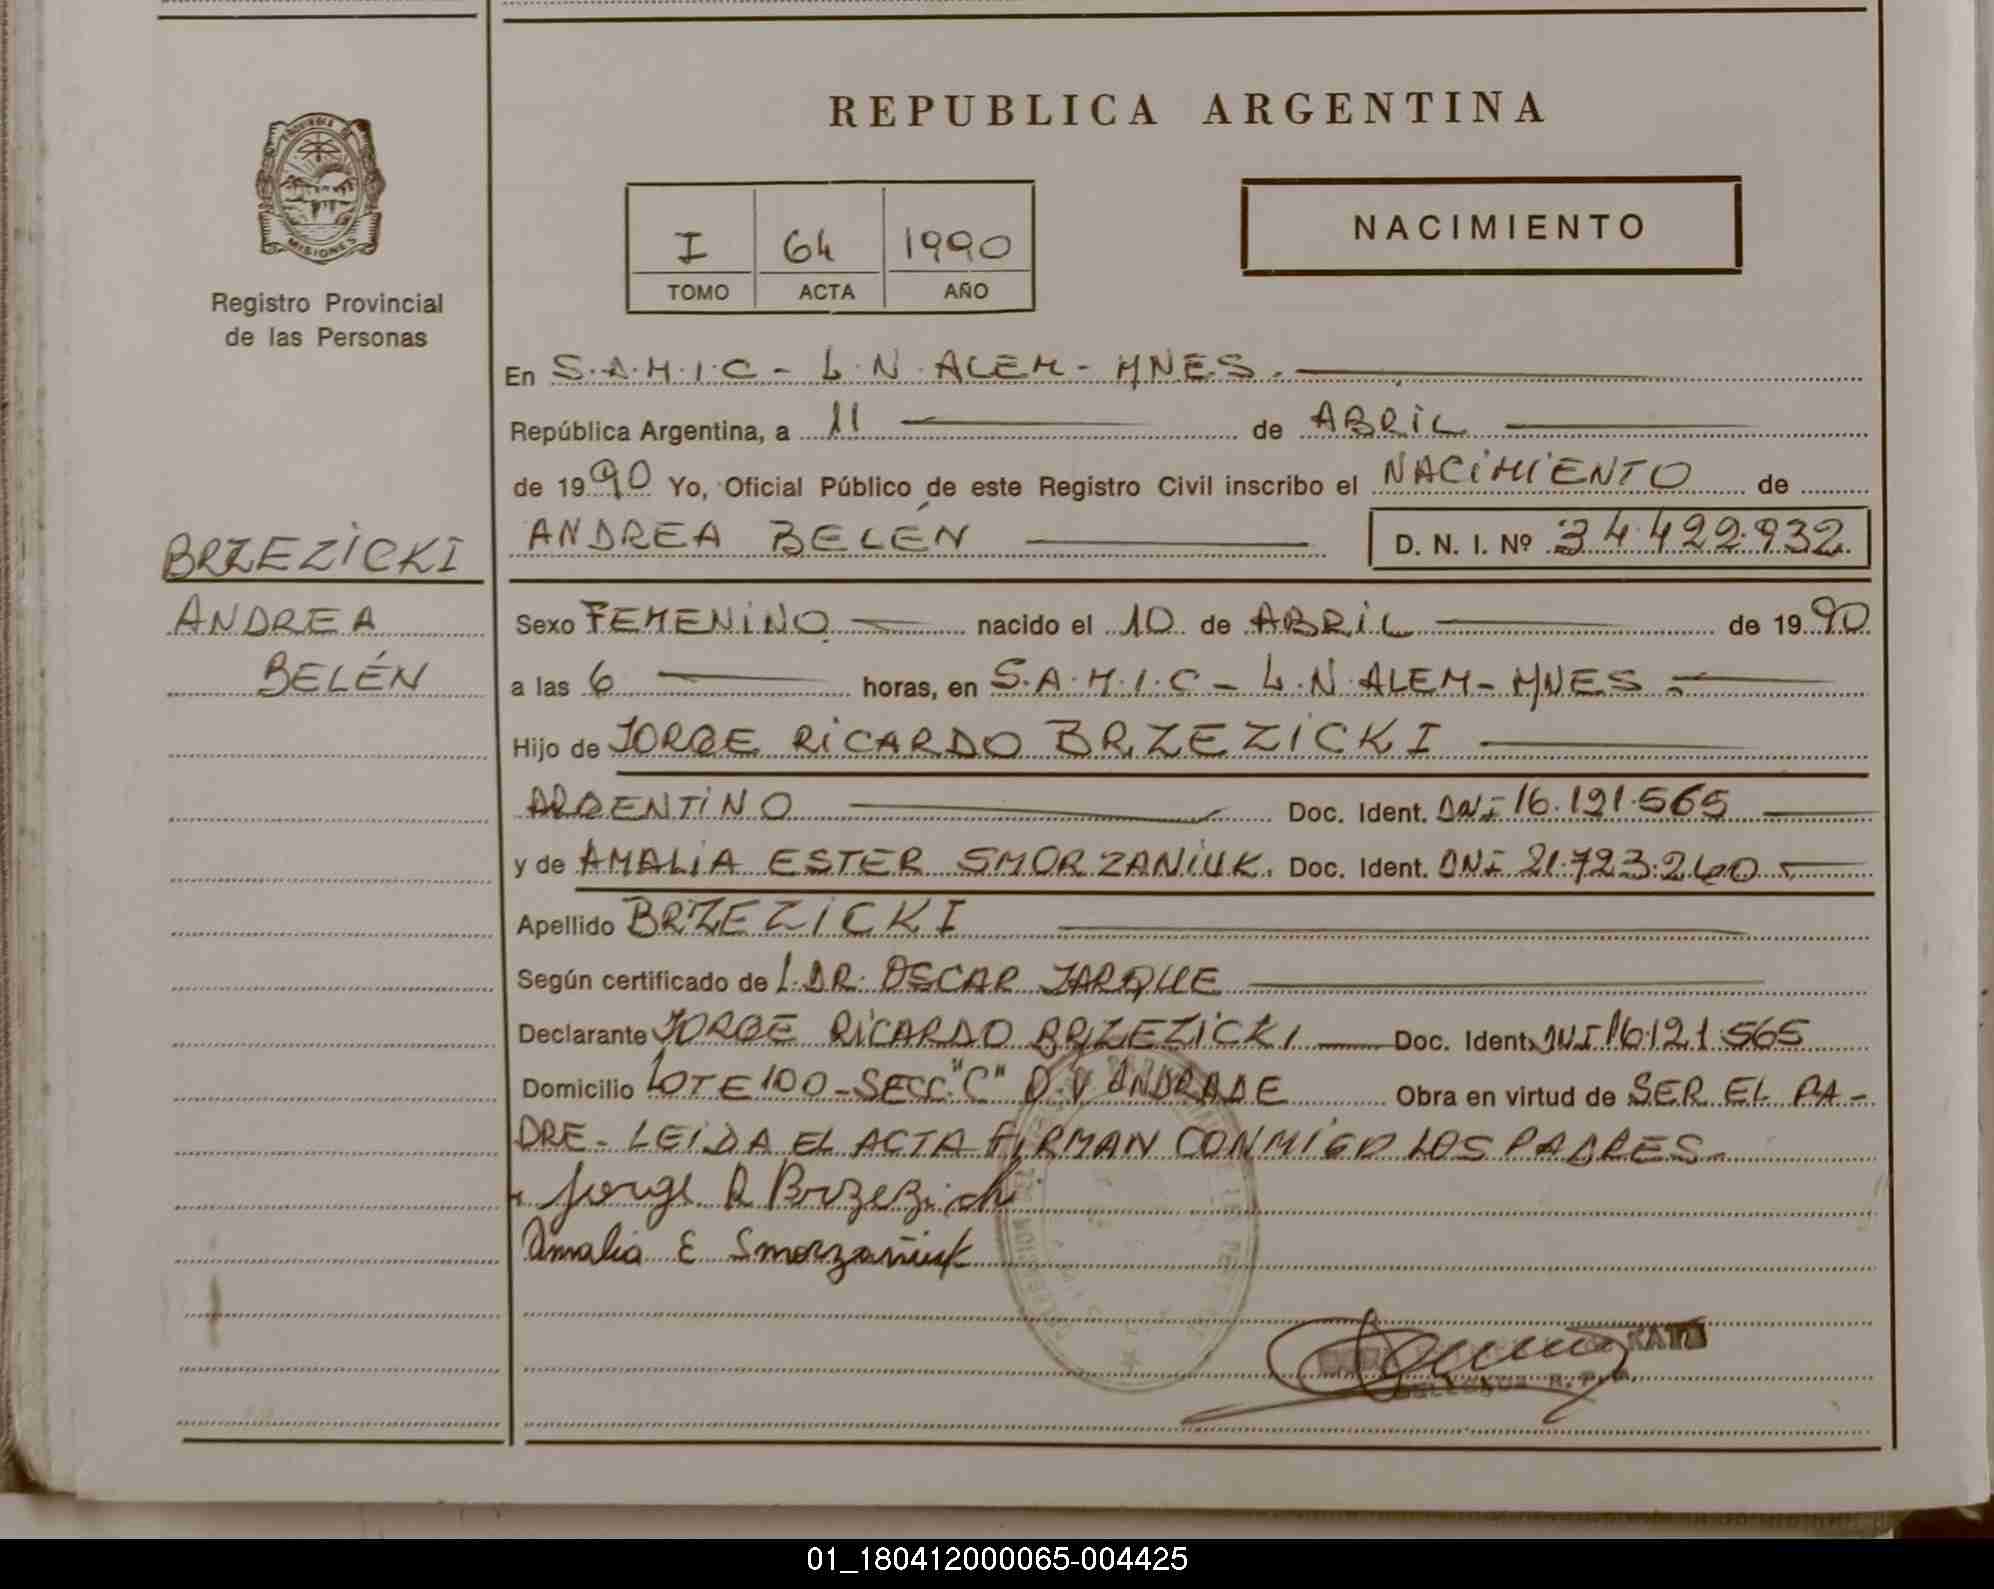 REPUBLICA ARGENTINA
PROVINCIA DE
MISIONES
Registro Provincial
de las Personas
I 64 1990
TOMO ACTA AÑO
NACIMIENTO
En S.A.M.I.C - L.N.ALEM - MNES.
República Argentina, a 11 de ABRIL
de 1990 Yo, Oficial Público de este Registro Civil inscribo el NACIMIENTO de
ANDREA BELÉN D. N. I. Nº 34.422.932
BRZEZICKI
ANDREA
BELÉN
Sexo FEMENINO nacido el 10 de ABRIL de 1990
a las 6 horas, en S.A.M.I.C - L.N.ALEM - MNES
Hijo de JORGE RICARDO BRZEZICKI
ARGENTINO Doc. Ident. DNI 16.121.565
y de AMALIA ESTER SMORZANIUK. Doc. Ident. DNI 21.723.240
Apellido BRZEZICKI
Según certificado de L.DR. OSCAR JARQUE
Declarante JORGE RICARDO BRZEZICKI Doc. Ident. DNI 16.121.565
Domicilio LOTE 100-SECC."C" O.V ANDRADE Obra en virtud de SER EL PA-
DRE. LEIDA EL ACTA FIRMAN CONMIGO LOS PADRES.
Jorge R Brzezicki
Amalia E Smorzaniuk
01_180412000065-004425